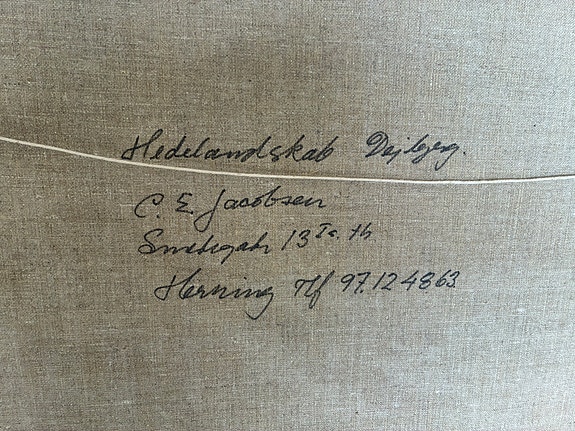 Hedelandskab Dejbjerg.
C. E. Jacobsen
13 Ts. th
Herning Tlf 97.124863